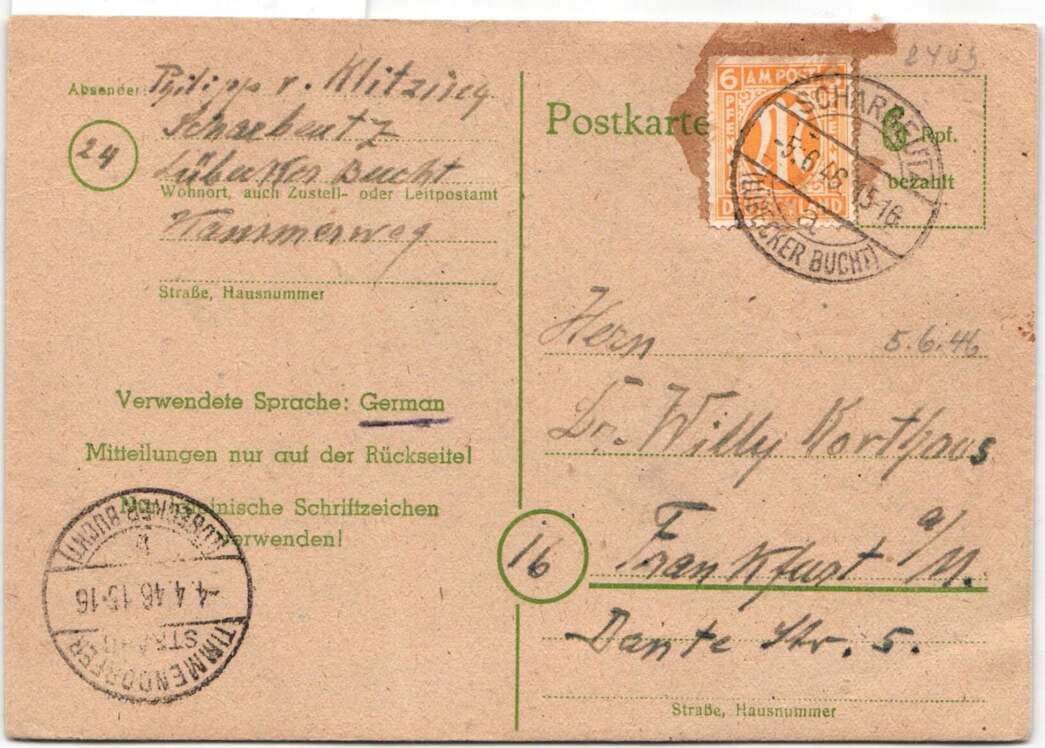 Absender
Philipp v. Klitzing
Scharbeutz
24
Lübecker Bucht
Wohnort, auch Zustell- oder Leitpostamt
Kammerweg
Straße, Hausnummer
Verwendete Sprache: German
Mitteilungen nur auf der Rückseite!
Nur lateinische Schriftzeichen
verwenden!
TIMMENDORFER
STRAND
-4.4.46 15-16
b
(LÜBECKER BUCHT)
2403
Postkarte
6 Rpf.
bezahlt
6 AM POST 6
PFENNIG
DEUTSCHLAND
SCHARBEUTZ
-5.6.46 15-16
a
(LÜBECKER BUCHT)
5.6.46
Herrn
Dr. Willy Korthaus
16
Frankfurt a/M.
Dante Str. 5.
Straße, Hausnummer